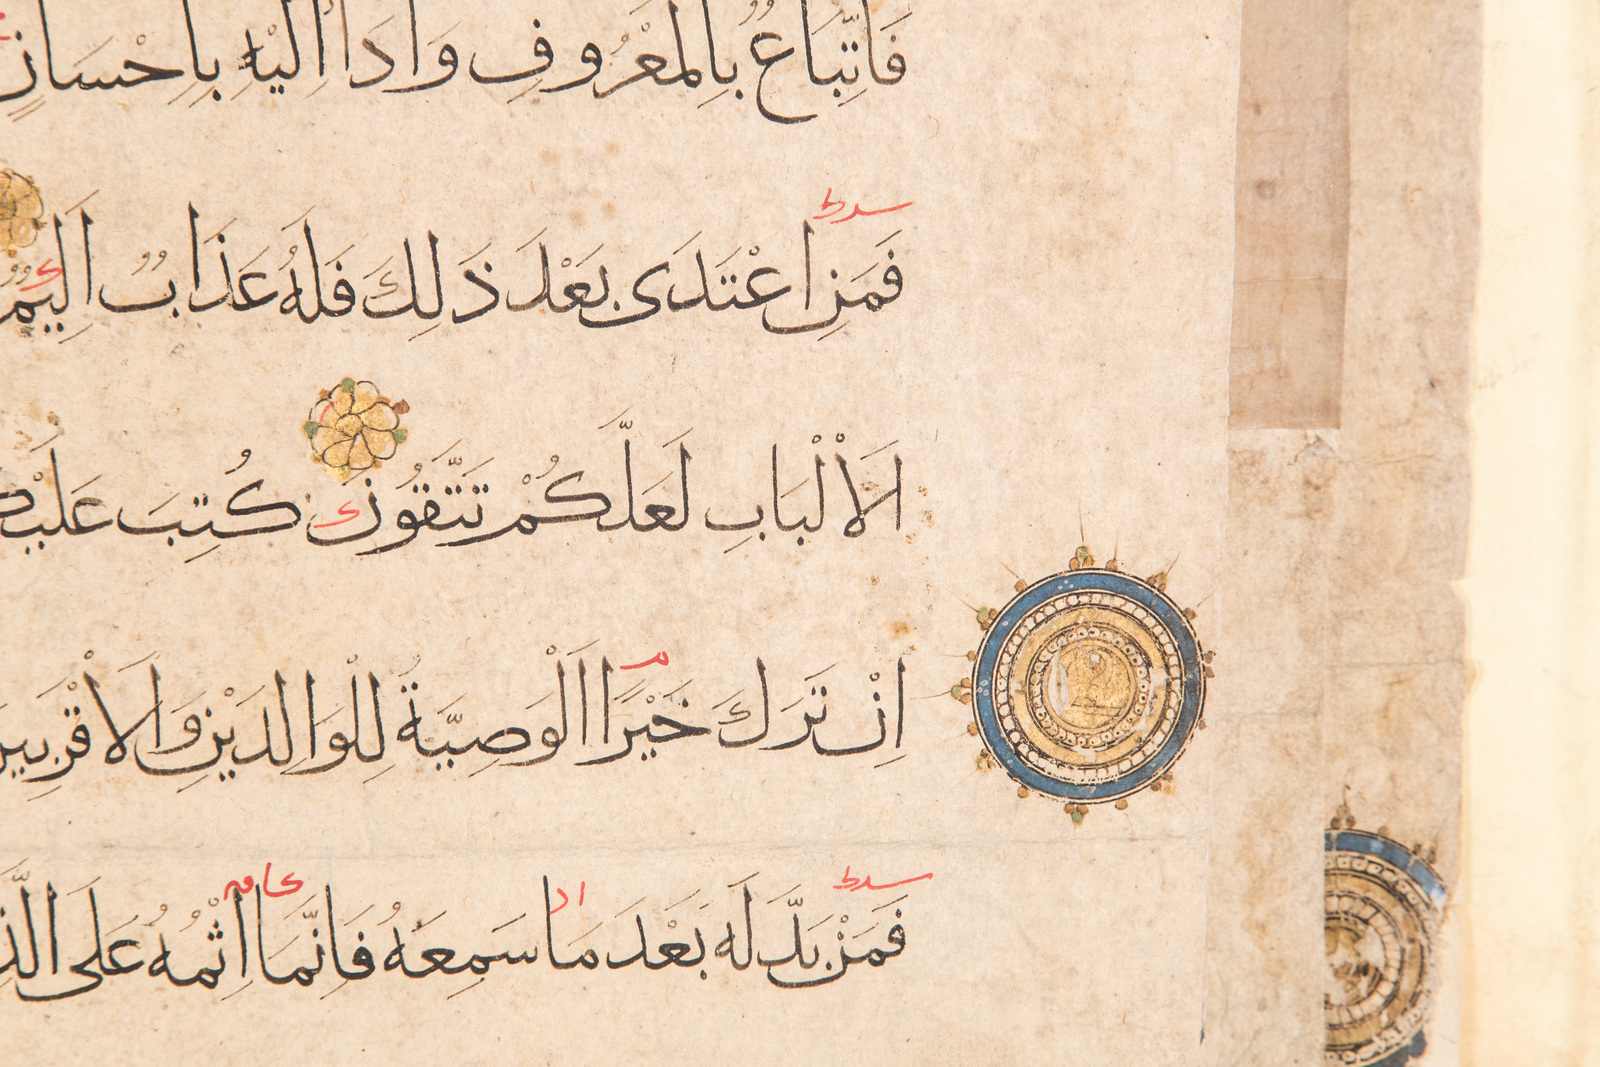 فَاتِّبَاعٌ بِالْمَعْرُوفِ وَأَدَاءٌ إِلَيْهِ بِإِحْسَانٍ
فَمَنِ اعْتَدَى بَعْدَ ذَلِكَ فَلَهُ عَذَابٌ أَلِيمٌ
الْأَلْبَابِ لَعَلَّكُمْ تَتَّقُونَ كُتِبَ
إِنْ تَرَكَ خَيْرًا الْوَصِيَّةُ لِلْوَالِدَيْنِ وَالْأَقْرَبِينَ
فَمَنْ بَدَّلَهُ بَعْدَ مَا سَمِعَهُ فَإِنَّمَا إِثْمُهُ عَلَى